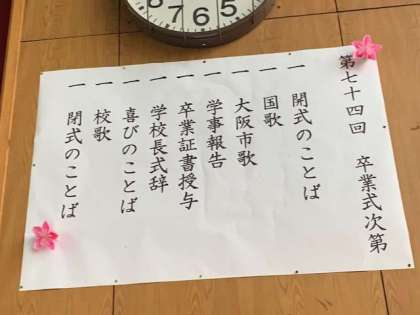 第七十四回 卒業式次第
一 開式のことば
一 国歌
一 大阪市歌
一 学事報告
一 卒業証書授与
一 学校長式辞
一 喜びのことば
一 校歌
一 閉式のことば
9
8 7 6 5 4
3